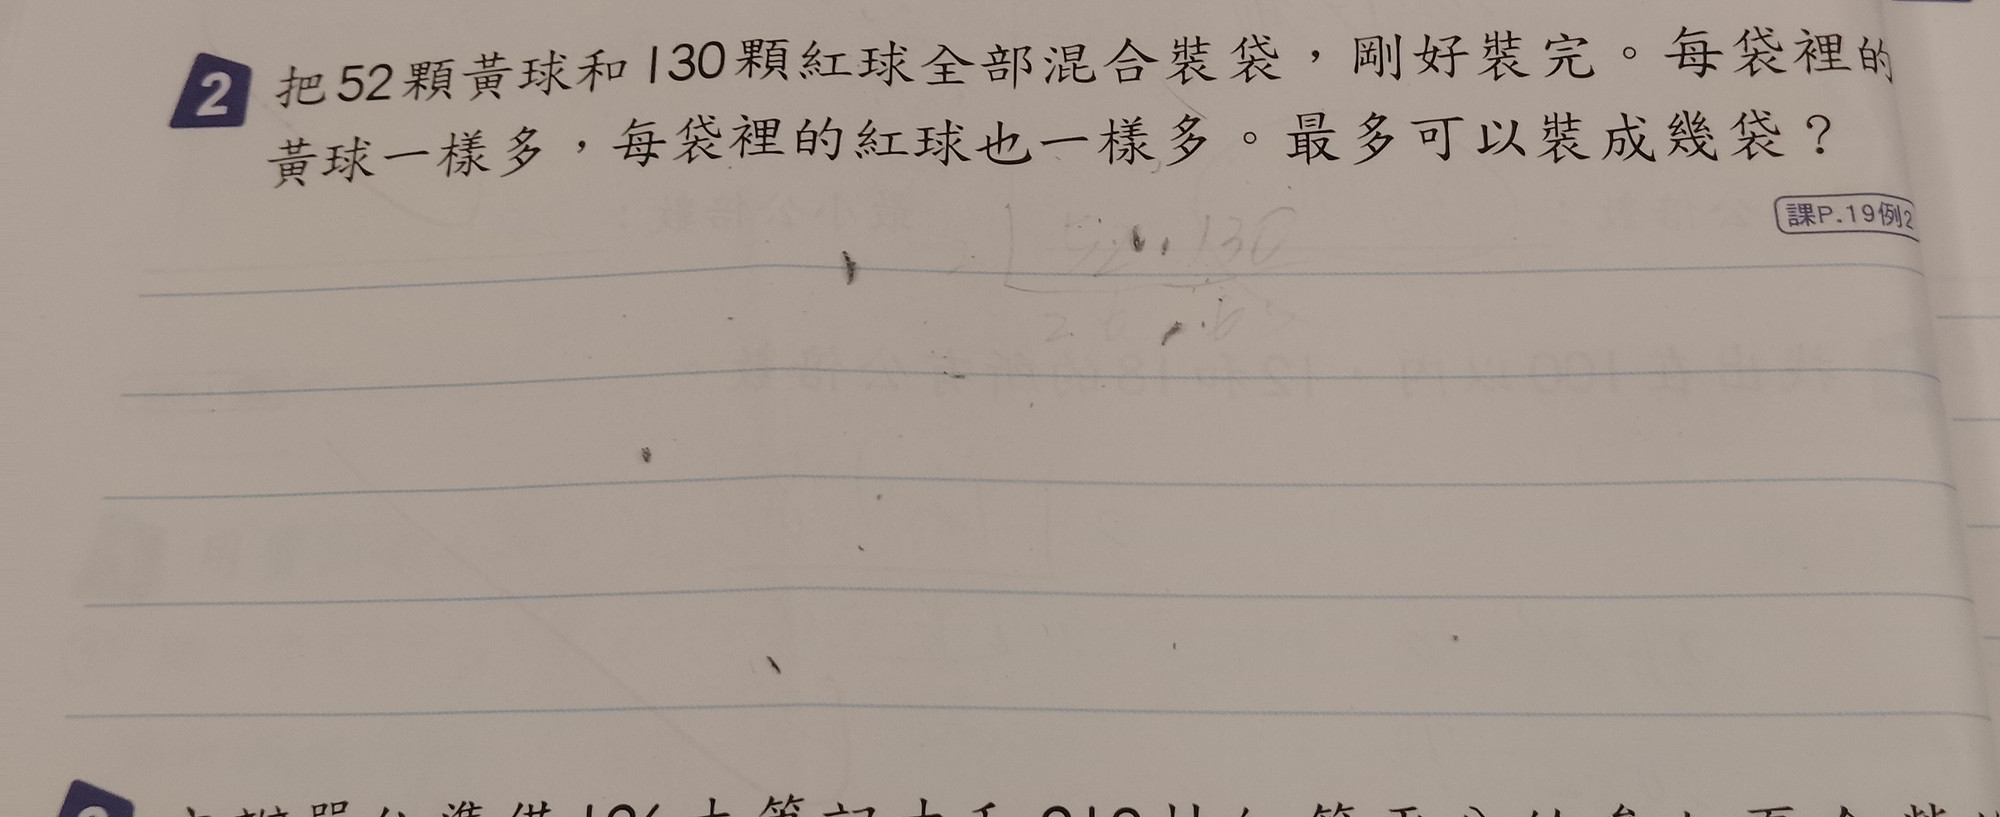 2 把52顆黃球和130顆紅球全部混合裝袋，剛好裝完。每袋裡的
黃球一樣多，每袋裡的紅球也一樣多。最多可以裝成幾袋？
課P.19例2
2 52 130
26 65